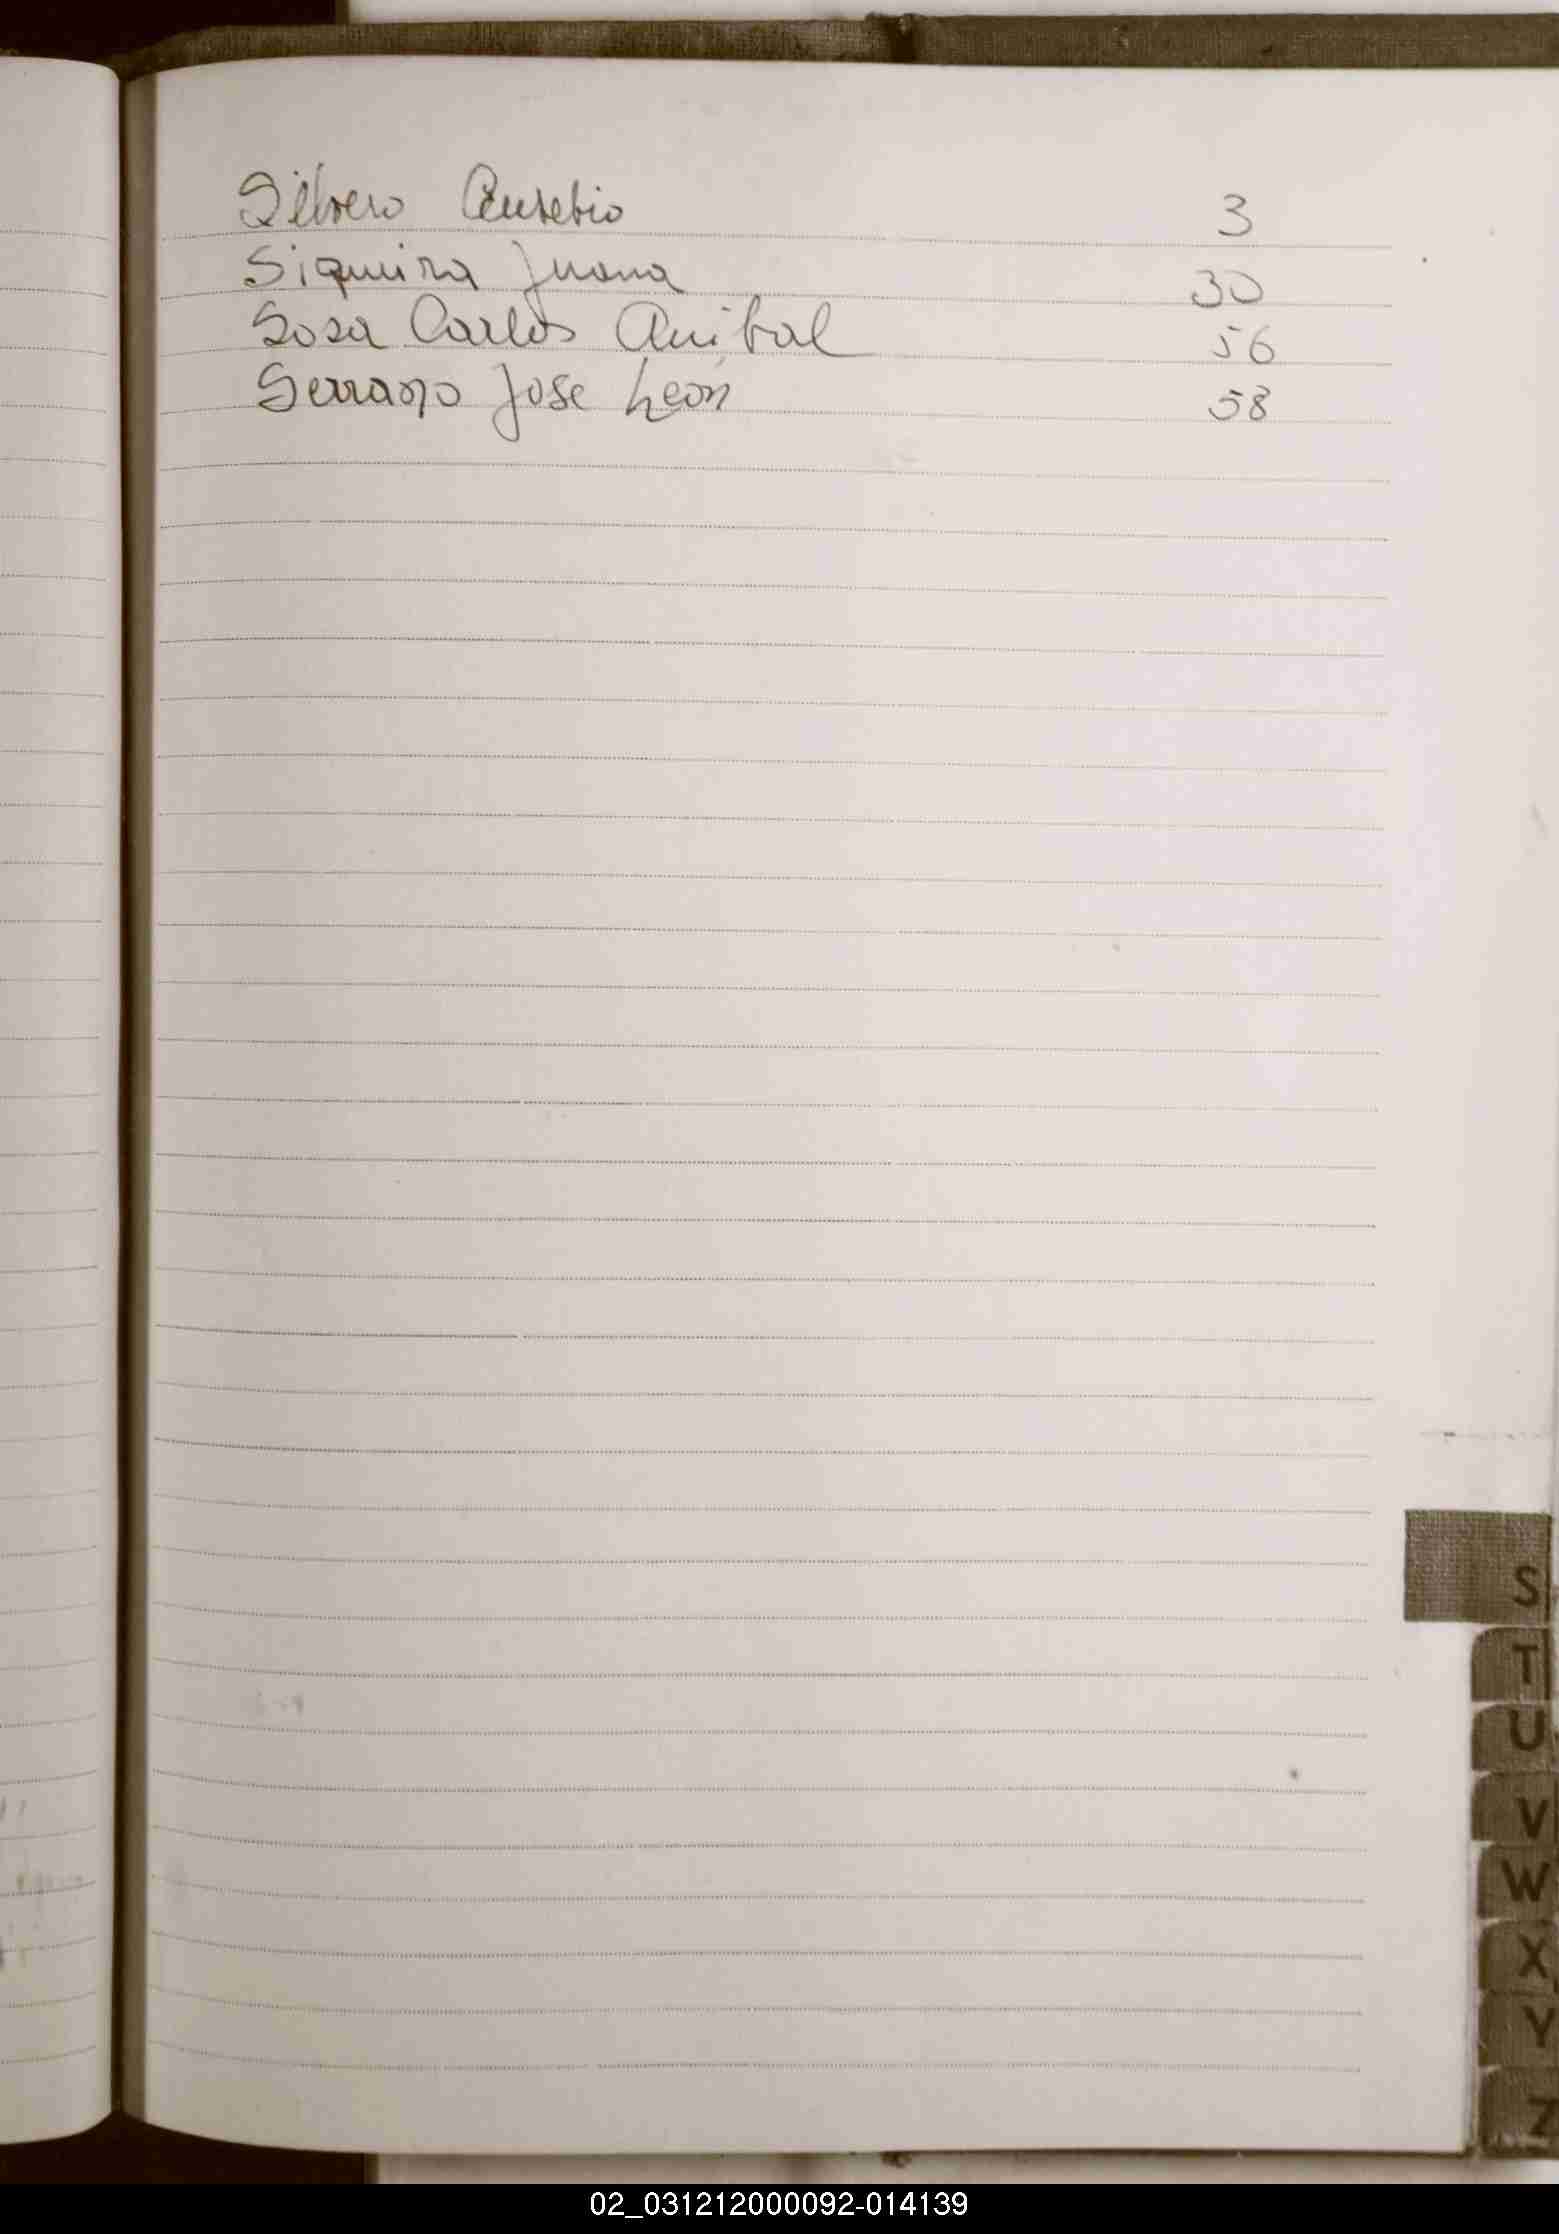 Silvero Eusebio 3
Siqueira Juana 30
Sosa Carlos Anibal 56
Serrano Jose León 58
S
T
U
V
W
X
Y
Z
02_031212000092-014139